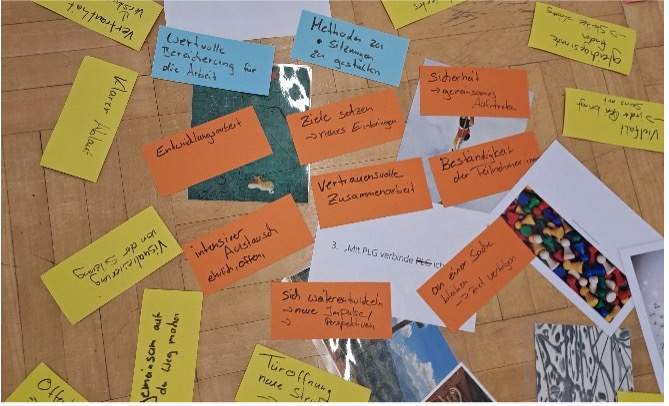 Vertrauthait
Klarer Ablauf
wertvolle
Bereicherung für
die Arbeit
Methoden zu
• Sitzungen
zu gestalten
Sicherheit
→ gemeinsames
Auftreten
Vielfalt
Entwicklungsarbeit
Ziele setzen
→ neues Einbringen
Vertrauensvolle
Zusammenarbeit
Beständigkeit
der Teilnehmer:innen
Visualisierung
von der
intensiver Austausch
3. „Mit PLG verbinde PLG ich
an einer Sache
bleiben
→ Ziel verfolgen
Sich weiterentwickeln
→ neue Impulse/
→ Perspektiven
gemeinsam auf
den Weg machen
Türöffnung
neue